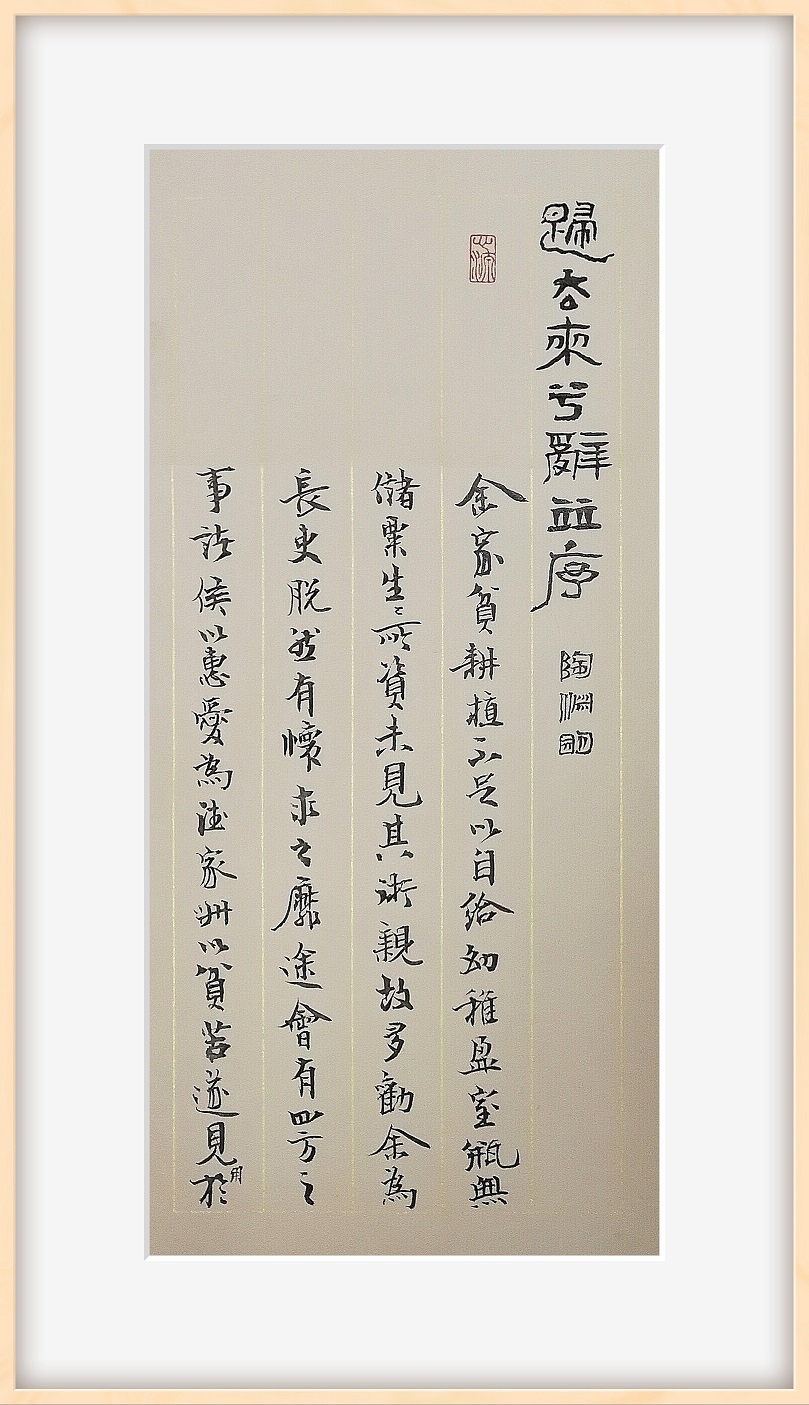 歸去來兮辭並序 陶淵明
余家貧耕植不足以自給幼稚盈室瓶無
儲粟生〻所資未見其術親故多勸余為
長吏脫然有懷求之靡途會有四方之
事諸侯以惠愛為德家叔以貧苦遂見用於